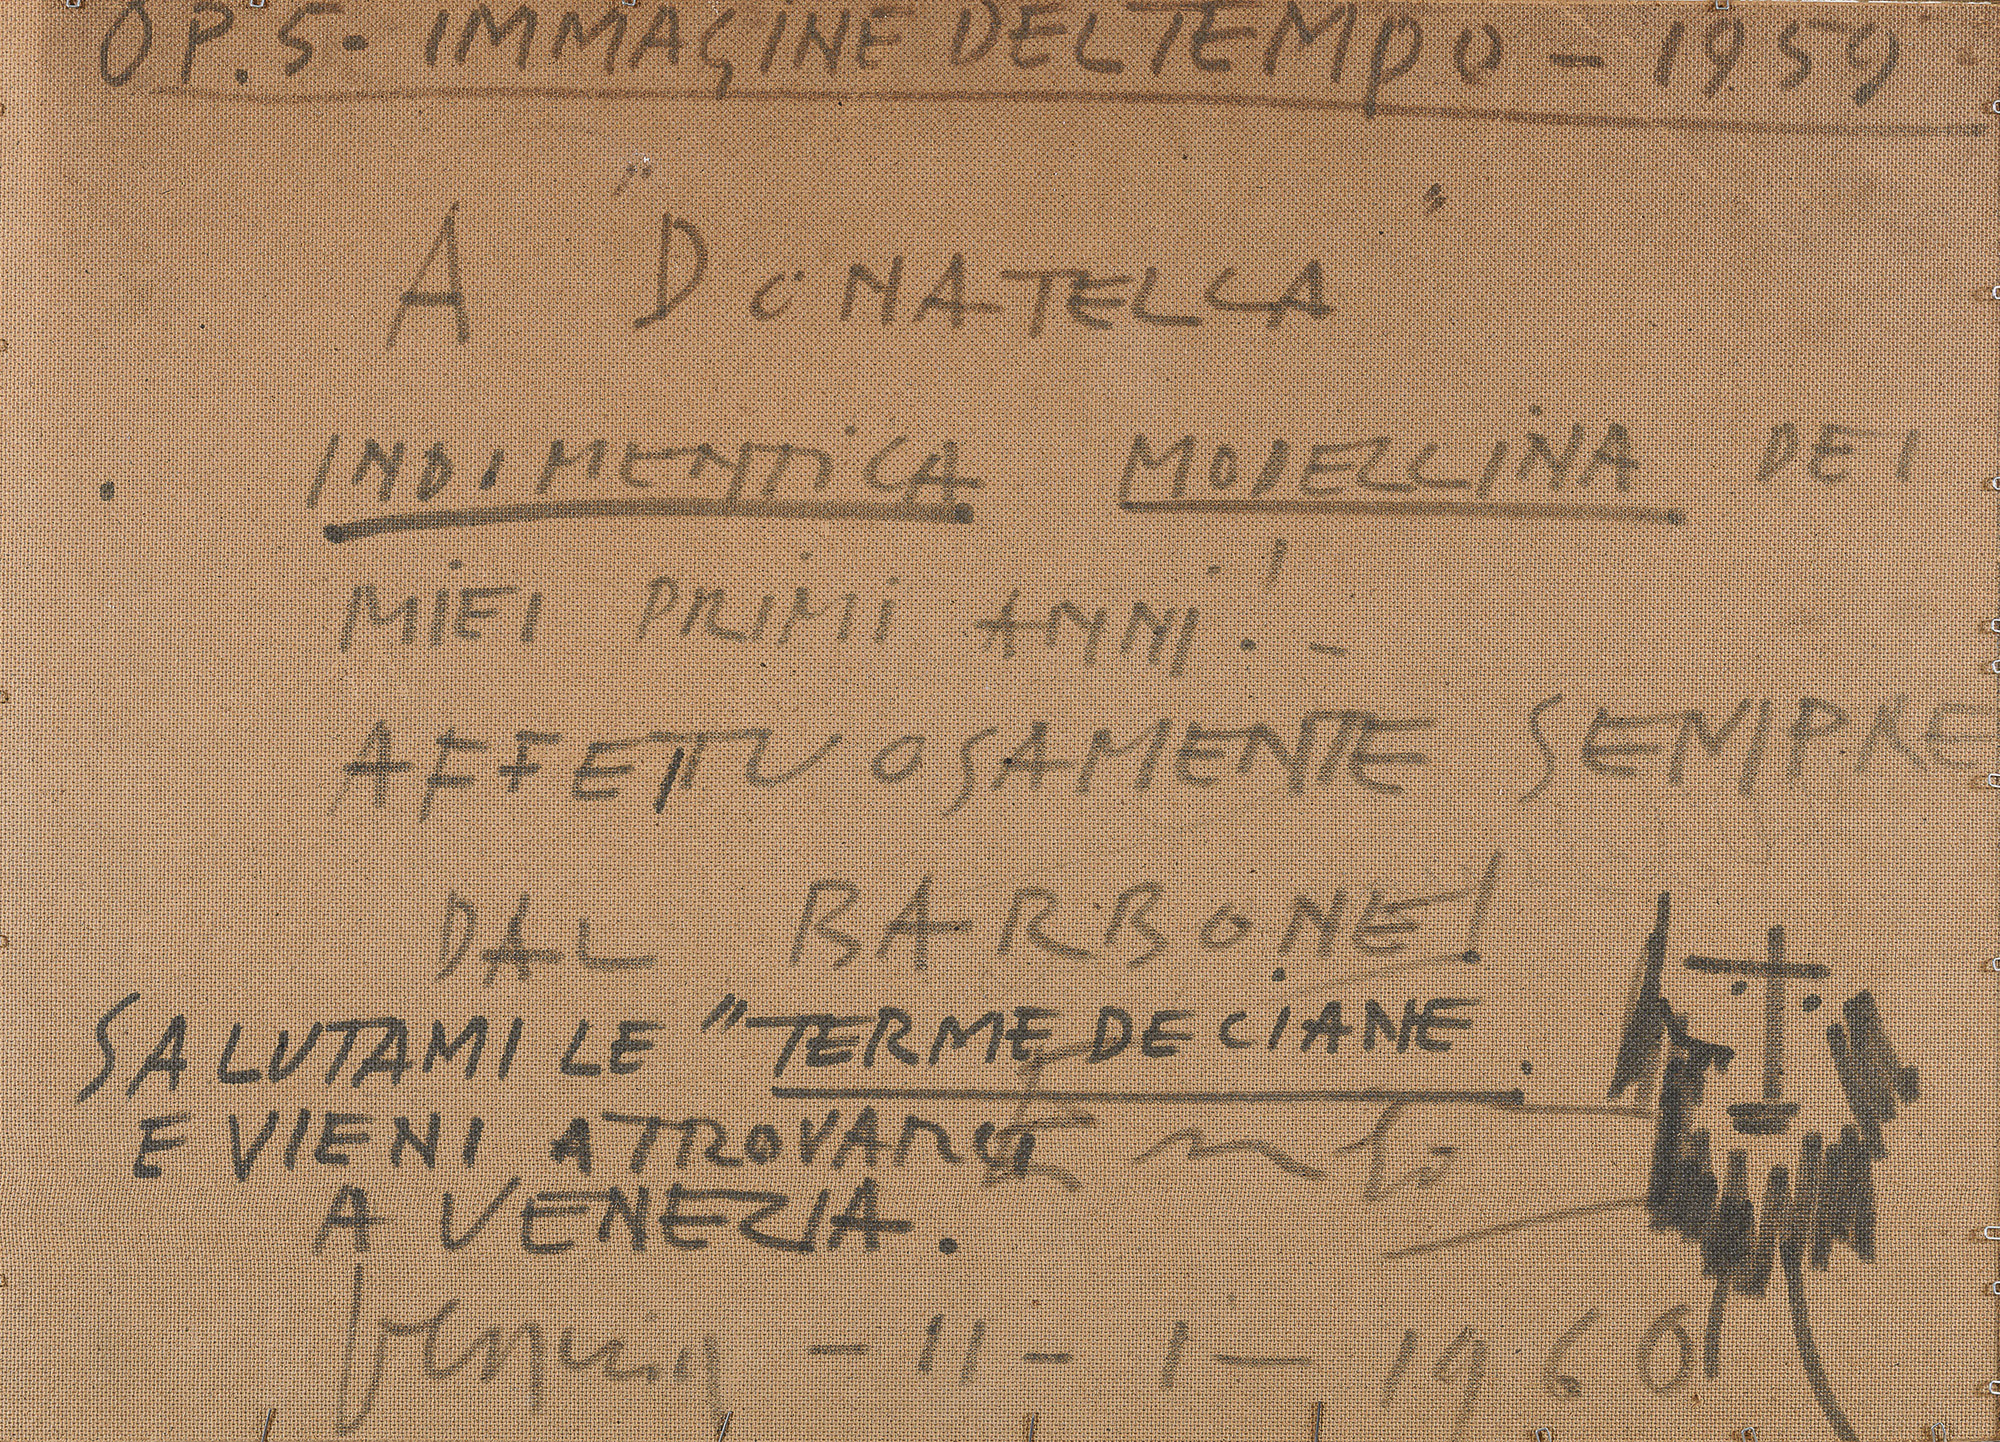 OP. 5. IMMAGINE DEL TEMPO - 1959
A "DONATELLA"
INDIMENTICA MODELLINA DEI
MIEI PRIMI ANNI! -
AFFETTUOSAMENTE SEMPRE
DAL BARBONE!
SALUTAMI LE "TERME DECIANE.
E VIENI A TROVARCI
A VENEZIA.
Venezia - 11 - 1 - 1960